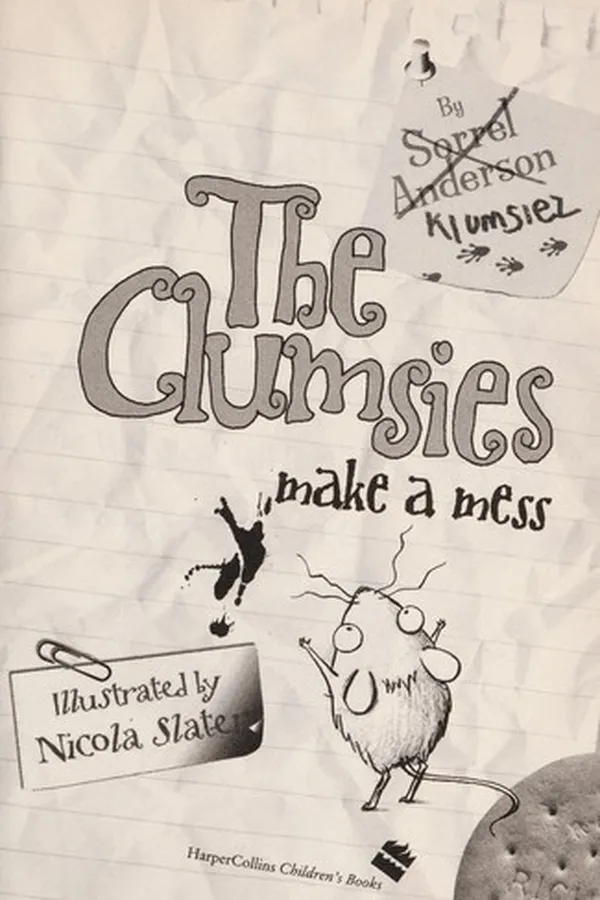 By
Sorrel
Anderson
Klumsiez
The
Clumsies
make a mess
Illustrated by
Nicola Slater
HarperCollins Children's Books
RICH